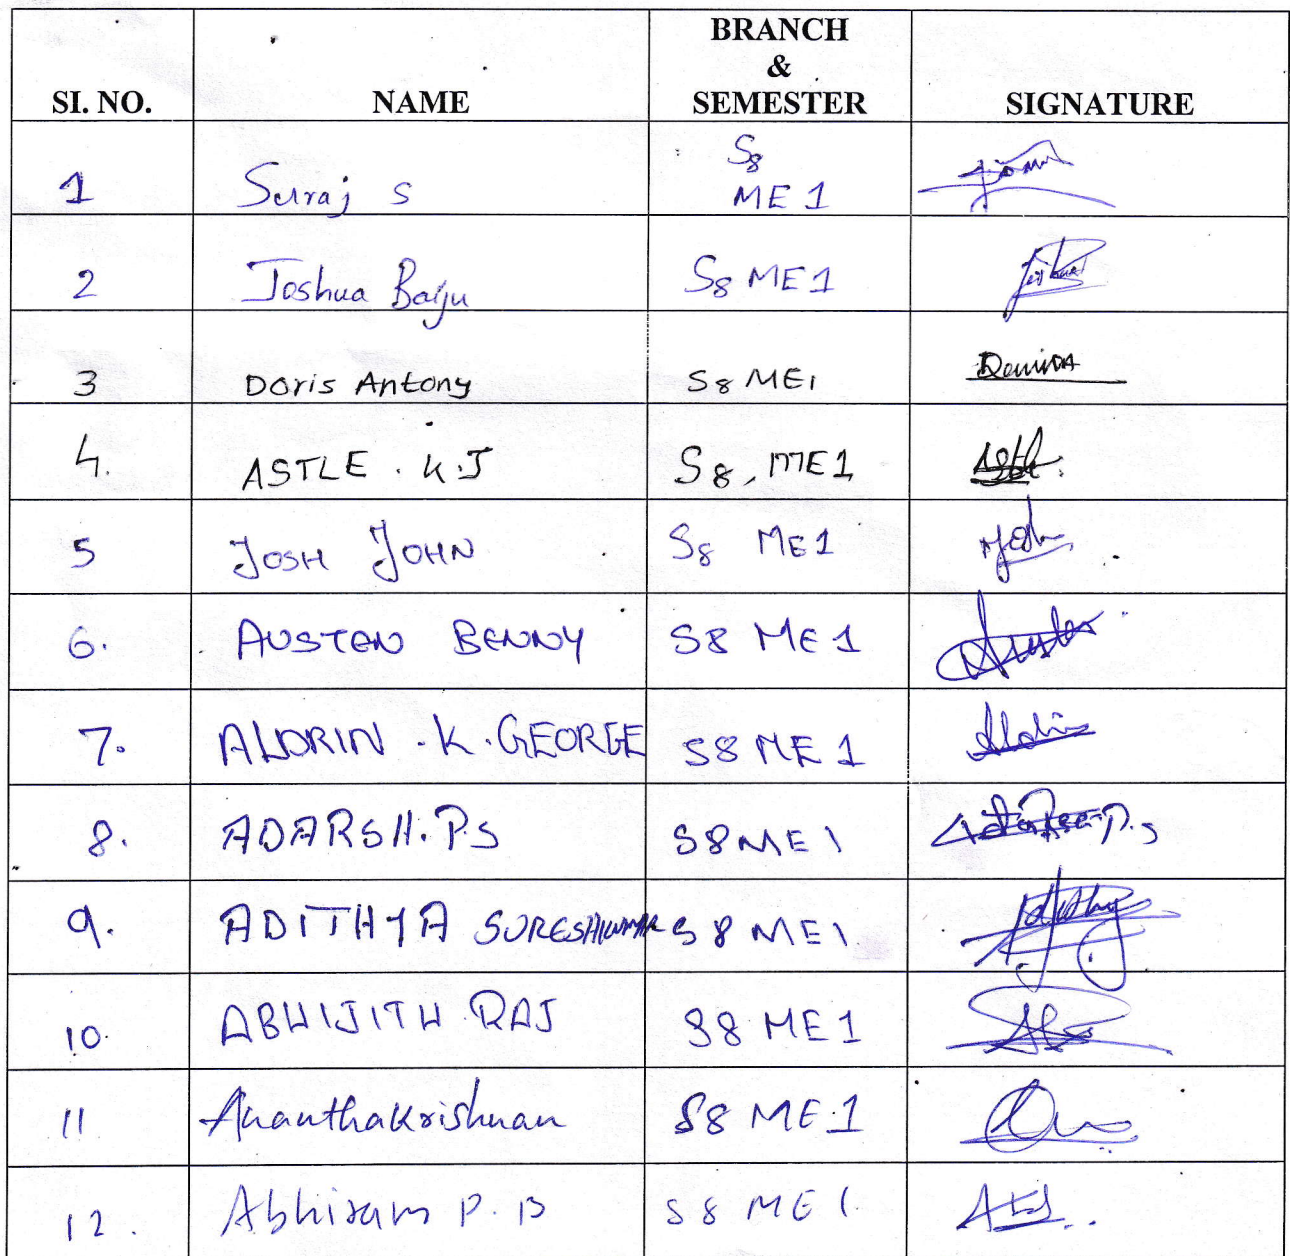 BRANCH
&
SI. NO. NAME SEMESTER SIGNATURE
S8
1 Suraj S ME 1
2 Joshua Baiju S8 ME 1
3 Doris Antony S8 ME1
4. ASTLE . K.J S8, ME1
5 JOSH JOHN S8 ME 1
6. AUSTEN BENNY S8 ME 1
7. ALDRIN .K. GEORGE S8 ME 1
8. ADARSH. P.S S8 ME 1
9. ADITHYA SURESHKUMAR S8 ME1
10. ABHIJITH RAJ S8 ME 1
11 Ananthakrishnan S8 ME 1
12. Abhiram P. B S8 ME 1